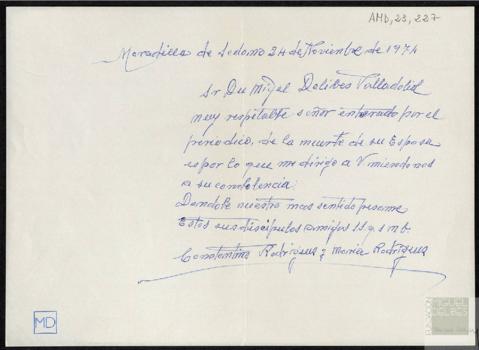 AMD, 23, 227
Moradillo de Sedano 24 de Noviembre de 1974
Sr Dn Migel Delibes Valladolid
muy respetable señor enterado por el
periodico, de la muerte de su Esposa
es por lo que me dirigo a V. uniendonos
a su condolencia.
Dandole nuestro mas sentido pesame
Estos sus discipulos amigos
Constantino Rodriguez y Maria Rodriguez
MD
FUNDACIÓN MIGUEL DELIBES